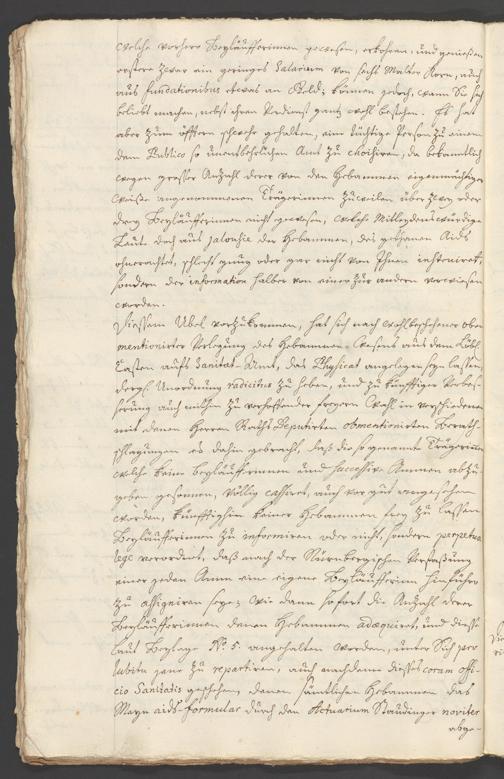 welche vorhero Beyläufferinnen gewesen, erkohren, und geniessen
erstere zwar ein geringes Salarium von sechs Malter Korn, auch
aus fundationibus etwas an Geld; können jedoch, wann Sie sich
beliebt machen, nebst ihrem Verdienst gantz wohl bestehen. Es hat
aber zum öfftern schwehr gehalten, eine tüchtige Person zu einem
dem Publico so unentbehrlichen Amt zu choisiren, da bekanntlich
wegen grosser Anzahl derer von den Hebammen eigenmächtiger
weiße angenommenen Trägerinnen zuweilen über zwey oder
drey Beyläufferinnen nicht gewesen, welche Mitleydens würdige
Leute doch aus jalousie der Hebammen, des gethanen Aids
ohneracht, schlecht genug oder gar nicht von Ihnen instruiret,
sondern der information halber von einer zur andern verwiesen
worden.
Diessem Übel vorzukommen, hat sich nach wohlbeschehener oben
mentionirter Verlegung des Hebammen Wesens aus dem Löbl.
Casten auffs Sanitæt-Amt, das Physicat angelegen seyn lassen,
dergl. Unordnung radicitus zu heben, und zu künfftiger Verbes-
serung auch mithin zu verhoffender freyern Wahl in verschiedenen
mit denen Herren Raths Deputirten obmentionirten Berath-
schlagungen es dahin gebracht, daß die so genannte Trägerinnen
welche keine Beyläufferinnen und successive Ammen abzu-
geben gesonnen, völlig cassiret, auch vor gut angesehen
worden, künfftighin keiner Hebammen frey zu lassen
Beyläufferinnen zu informiren oder nicht, sondern perpetua
lege verordnet, daß nach der Nürnbergischen Verfaßung
einer jeden Amm eine eigene Beyläufferin hinführo
zu assigniren seye; wie dann sofort die Anzahl derer
Beyläufferinnen denen Hebammen adæquiret, und diesse
laut Beylage No. 5. angehalten worden, unter Sich pro
lubitu jene zu repartiren, auch nachdeme diesses coram offi-
cio Sanitatis geschehen, denen sämtlichen Hebammen das
Mayn aids-formular durch den Actuarium Staudinger noviter
abge-